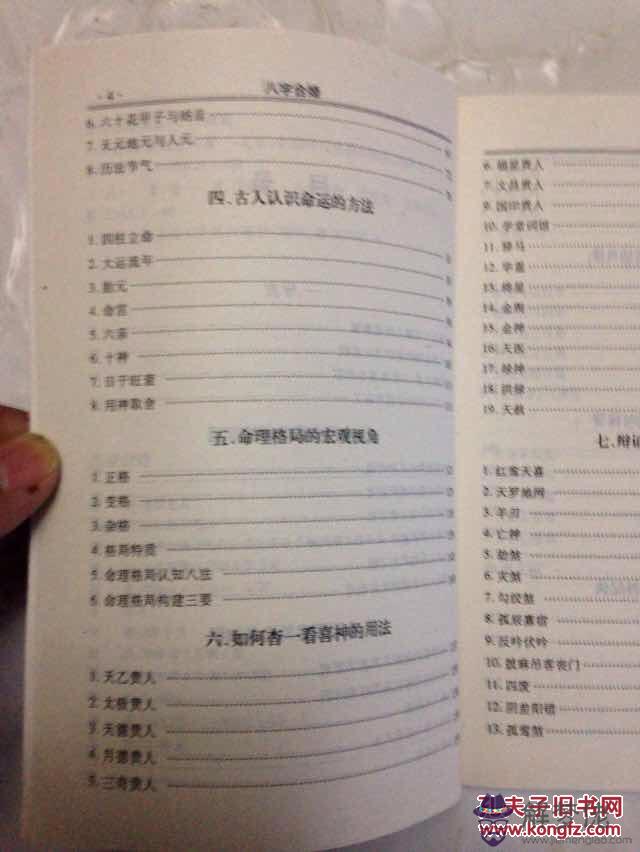 八字合婚
6. 六十花甲子与纳音
7. 天元地元与人元
8. 历法节气
四.古人认识命运的方法
1. 四柱立命
2. 大运流年
3. 胎元
4. 命宫
5. 六亲
6. 十神
7. 日干旺衰
8. 用神取舍
五.命理格局的宏观视角
1. 正格
2. 变格
3. 杂格
4. 格局特质
5. 命理格局认知八法
6. 命理格局构建三要
六.如何查一看喜神的用法
1. 天乙贵人
2. 太极贵人
3. 天德贵人
4. 月德贵人
5. 三奇贵人
6. 福星贵人
7. 文昌贵人
9. 国印贵人
10. 学堂词馆
11. 驿马
12. 华盖
13. 将星
14. 金舆
15. 金神
16. 天医
17. 禄神
18. 拱禄
19. 天赦
七.辩证
1. 红鸾天喜
2. 天罗地网
3. 羊刃
4. 亡神
5. 劫煞
6. 灾煞
7. 勾绞煞
8. 孤辰寡宿
9. 反吟伏吟
10. 披麻吊客丧门
11. 四废
12. 阴差阳错
13. 孤鸾煞
夫子旧书网
www.kongfz.com
www.jiemengjiao.com